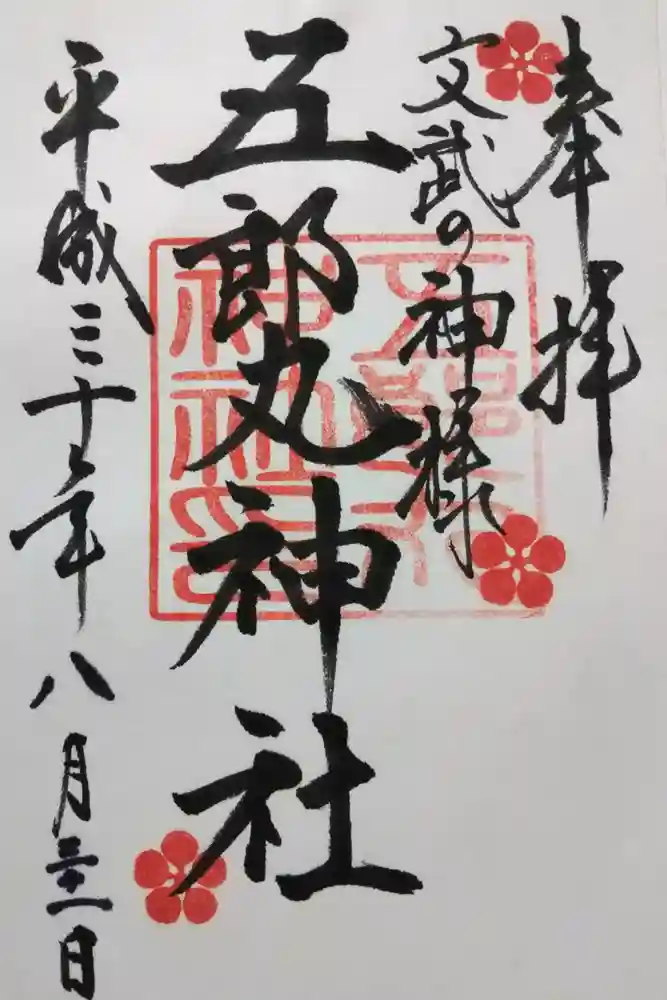 奉拝
文武の神様
五郎丸神社
平成三十年八月三十一日
五郎丸
神社印